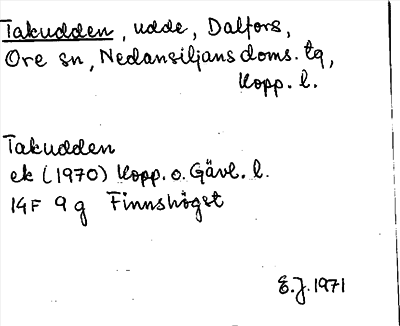 Takudden, udde, Dalfors,
Ore sn, Nedansiljans doms. tg,
Kopp. l.
Takudden
ek (1970) Kopp. o. Gävl. l.
14F 9g Finnshöget
E.J. 1971